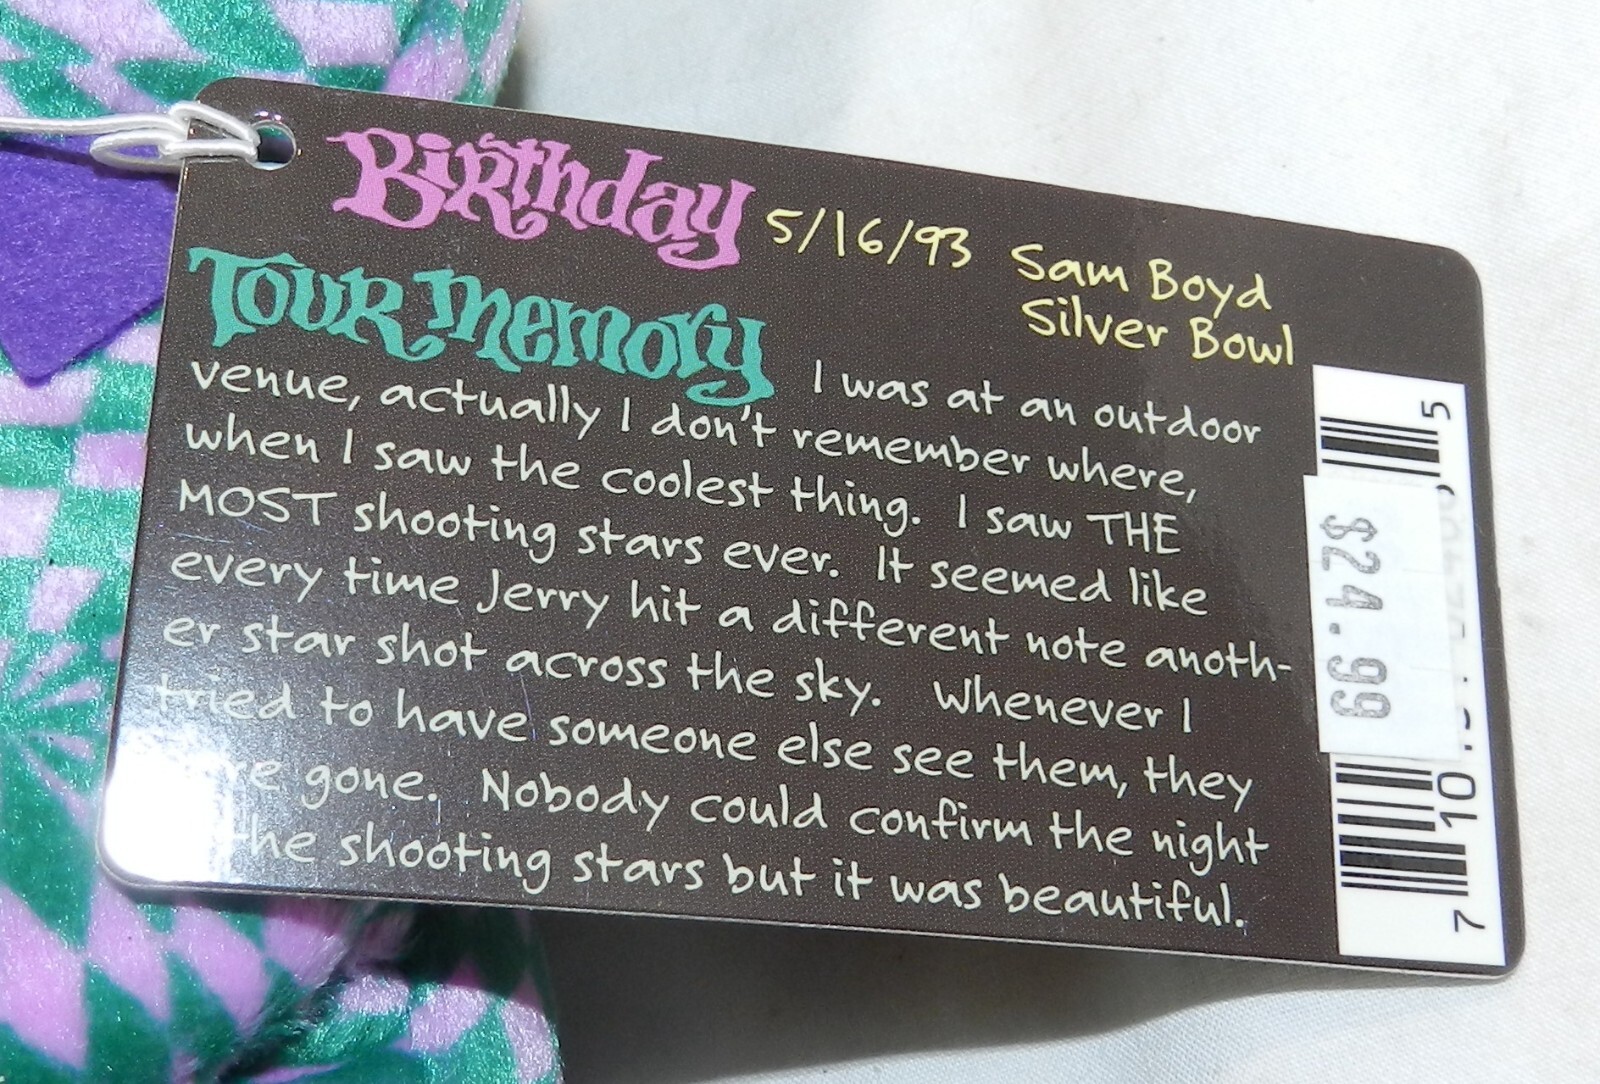 Birthday 5/16/93 Sam Boyd
Silver Bowl
Tour Memory I was at an outdoor
venue, actually I don't remember where,
when I saw the coolest thing. I saw THE
MOST shooting stars ever. It seemed like
every time Jerry hit a different note anoth-
er star shot across the sky. Whenever I
tried to have someone else see them, they
gone. Nobody could confirm the night
the shooting stars but it was beautiful.
$24.99
7
10
5